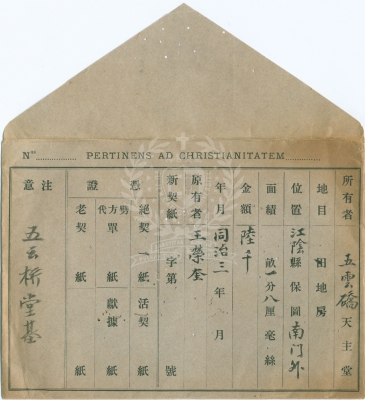 Nº PERTINENS AD CHRISTIANITATEM
所有者 五雲橋天主堂
地目 田地房
位置 江陰縣保圖南門外
面績 畝一分八厘毫絲
金額 陸千
年月 同治三年 月
原有者 王榮奎
新契紙 字第 號
憑證
絕契 一紙 活契 紙
代方單 紙 獻據 紙
老契 紙 紙
注意
五云桥堂基